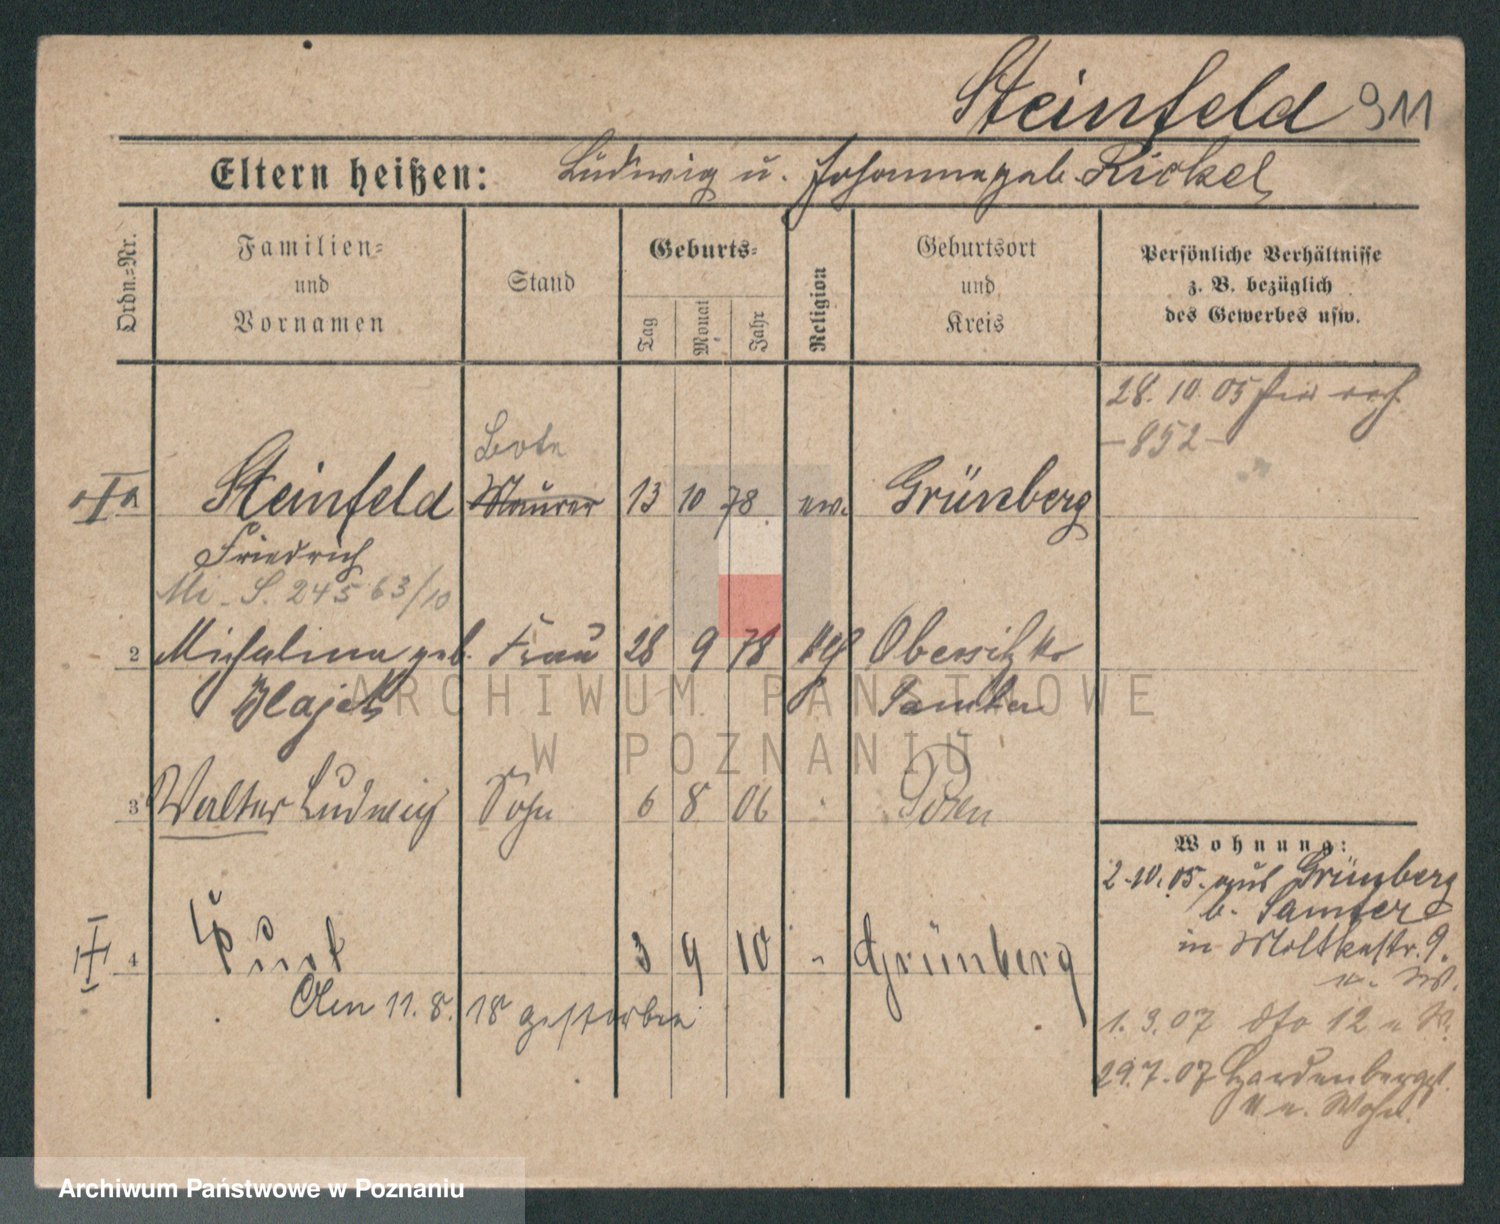 Steinfeld 911
Eltern heißen: Ludwig u. Johanna geb. Rickel
Ordn.=Nr.
Familien=
und
Vornamen
Stand
Geburts=
Tag
Monat
Jahr
Religion
Geburtsort
und
Kreis
Persönliche Verhältnisse
z. B. bezüglich
des Gewerbes usw.
28. 10. 05
– 852 –
Bote
Steinfeld Maurer 13 10 78 ev. Grünberg
Friedrich
Mi. S. 245 63/10
2 Michalina geb. Frau 28 9 78 kth Obersitzko
Hlajek Samter
3 Walter Ludwig Sohn 6 8 06 Posen
4 Kurt 3 9 10 " Grünberg
Am 11. 8. 18 gestorben
Wohnung:
2. 10. 05. aus Grünberg
b. Samter
in Moltkestr. 9.
1. 3. 07 dto 12
29. 7. 07 Hardenbergst.
11 u. Wohn.
ARCHIWUM PAŃSTWOWE
W POZNANIU
Archiwum Państwowe w Poznaniu